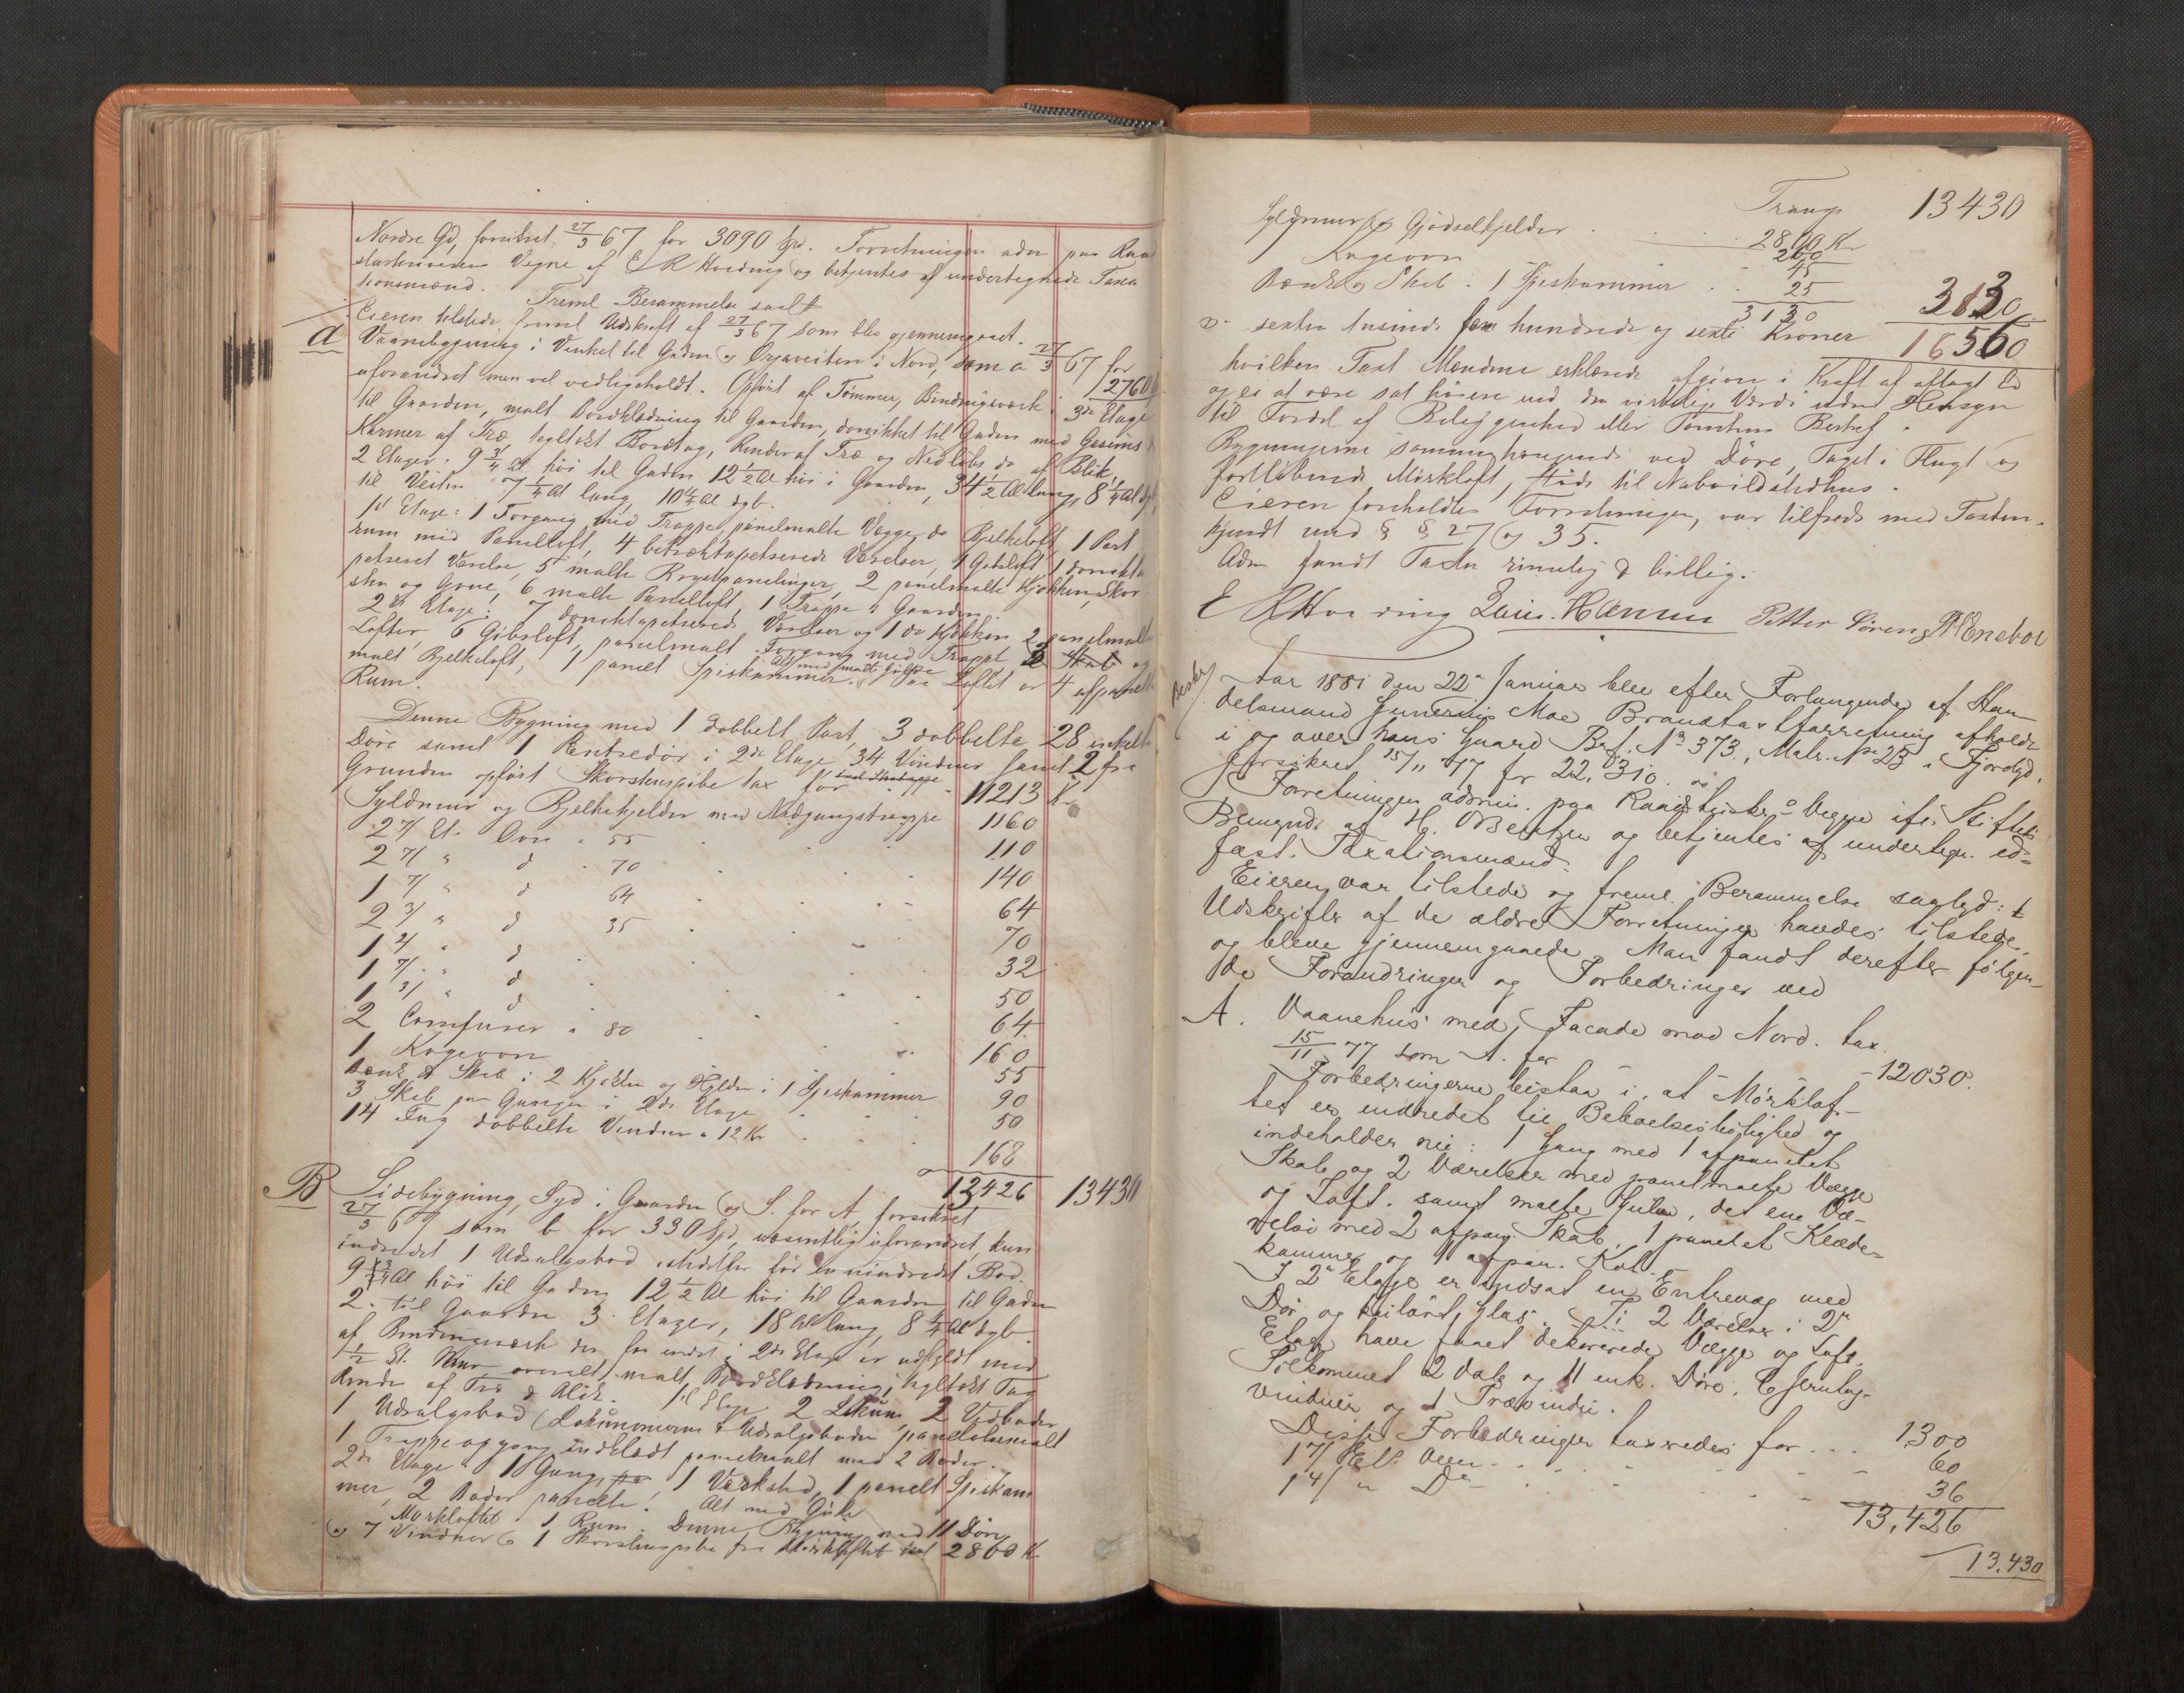 Nordre Gd, forsikret 27/3 67 for 3090 Spd. Forretningen adm paa Raad
stueskriverens Vegne af E R Hveding og betjentes af undertegnede Taxa
tionsmænd. Freml Berammelse saalt
Eieren tilstede freml Udskrift af 27/3 67 som blev gjennemgaaet.
a Vaanebygning i Vinkel til Gaden og Veiten i Nord, som a 27/3 67 for 2760
uforandret men vel vedligeholdt. Opført af Tømmer, Bindingsværk i 3de Etage
til Gaarden, malt Bordklædning til Gaarden, donikket til Gaden med Gesims
Karmer af Træ, tegltækt Bordtag, Render af Træ og Nedløbs do af Blik,
2 Etager. 9 3/4 Al høi til Gaden 12 1/2 Al høi i Gaarden, 34 1/2 Al lang, 8 1/4 Al dyb,
til Veiten 7 1/4 Al lang, 10 1/4 Al dyb.
1st Etage: 1 Forgang med Trappe panelmalte Vægge, do Bjelkeloft 1 Port
rum med Panelloft, 4 betræktapetserede Værelser, 1 Gibsloft 1 doniktta
petseret Værelse, 5 malte Brystpanelinger, 2 panelmalte Kjøkken, Skor
sten og Grue, 6 malte Panelloft, 1 Trappe i Gaarden
2de Etage: 7 doniktapetserede Værelser og 1 do Kjøkken 2 panelmalte
Lofter, 6 Gibsloft, panelmalt Forgang med Trappe 2 Skab og
malt Bjelkeloft, 1 panelt Spiskammer. Alt med malte Gulve Paa Loftet er 4 afpanelte
Rum.
Denne Bygning med 1 dobbelt Port, 3 dobbelte 28 enkelte
Døre samt 1 Entredør i 2de Etage, 34 Vinduer samt 2 fra
Grunden opført Skorstenspibe tax for 11213 Kr
Syldmur og Bjelkekjelder med Nedgangstrappe 1160
2 7/ Et. Ovn a 55 110
2 7/ " d 70 140
1 7/ " d 64 64
2 3/ " d 35 70
1 2/ " d 32
1 7/ " d 50
1 3/ " d 64
2 Comfurer a 80 160
1 Kogeovn 55
Bænk & Skab i 2 Kjøkken og Hylder i 1 Spiskammer 90
3 Skab paa Gangen i 2de Etage 50
14 Fag dobbelte Vinduer a 12 Kr 168
13426 13430
B Sidebygning, Syd i Gaarden og S. for A, forsikret
27/3 67 som b for 330 Spd, væsentlig uforandret, kun
indredet 1 Udsalgsbod istedetfor før en uindredet Bod.
9 3/4 Al høi til Gaden 12 1/2 Al høi til Gaarden til Gaden
2. til Gaarden 3 Etager, 18 Al lang, 8 1/4 Al dyb.
af Bindingsværk der for endel i 2de Etage er udfyldt med
1/2 St. Mur overalt malt Bordklædning, tegltækt Tag
Render af Træ & Blik. 1st Etage 2 Lokum 2 Vedboder
1 Udsalgsbod (Lokumerne & Udsalgsboden panelalmalt
1 Trappeopgang indklædt panelmalt med 2 Boder.
2de Etage 1 Gang, 1 Værksted, 1 panelt Spiskam
mer, 2 Boder panelte. Alt med Gulve
Mørkloftet 1 Rum. Denne Bygning med 11 Døre
og 7 Vinduer & 1 Skorstenspibe fra Mørkloftet tax 2860 Kr
Transp 13430
Syldmur & Gjødselkjelder 2860 Kr
Kogeovn 45
Bænk & Skab i 1 Spiskammer 25
3130 3130
sexten tusinde fem hundrede og sexti Kroner 16560
hvilken Taxt Mændene erklærede afgiven i Kraft af aflagt Ed
og ei at være sat høiere end den virkelige Værdi uden Hensyn
til Fordel af Beliggenhed eller Tomtens Beskaf.
Bygningerne sammenhængende ved Døre, Taget i Flugt og
fortløbende Mørkloft, støde til Naboildstedhus.
Eieren foreholdtes Forretningen, var tilfreds med Taxten.
kjendt med § § 27 og 35.
Adm fandt Taxten rimelig & billig.
E R Hveding Petter Sørens
Beskr Aar 1881 den 22de Januar blev efter Forlangende af Han
delsmand Moe Brandtaxtforretning afholdt
i og over hans Gaard Brf. No 373, Matr. No 25 i Fjordgd.
forsikret 15/11 77 for 22.310.
Forretningen admin. paa Raadstuskr. Vegne ifl. Stiftets
Bemynd. af H. Berthen og betjentes af undertegn. ed-
fæst. Taxationsmænd.
Eieren var tilstede og freml. Berammelse saalyd:
Udskrifter af de ældre Forretninger havdes tilstede,
og bleve gjennemgaaede. Man fandt derefter følgen-
de Forandringer og Forbedringer ved
A. Vaanehus med Facade mod Nord. tax.
15/11 77 som A. for 12030.
Forbedringerne bestaa i, at Mørklof-
tet er indredet til Beboelsesleilighed og
indeholder nu: 1 Gang med 1 afpanelet
Skab og 2 Værelser med panelmalte Vægge
og Loft. samt malte Gulve, det ene Væ-
relse med 2 afpan. Skab, 1 panelet Klæde-
kammer og 1 afpan. Kot.
I 2de Etage er indsat en Entrevæg med
Dør og kulørt Glas. 2 Værelser i 2de
Etage have faaet dekorerede Vægge og Loft.
Tilkommet 2 dob og 11 enk. Døre, 6 Jerntag-
vinduer og 1 Trævindu.
Disse Forbedringer taxeredes for 1300
1 7/ Et. Ovn 60
1 4/ " Do 36
13,426
13.430